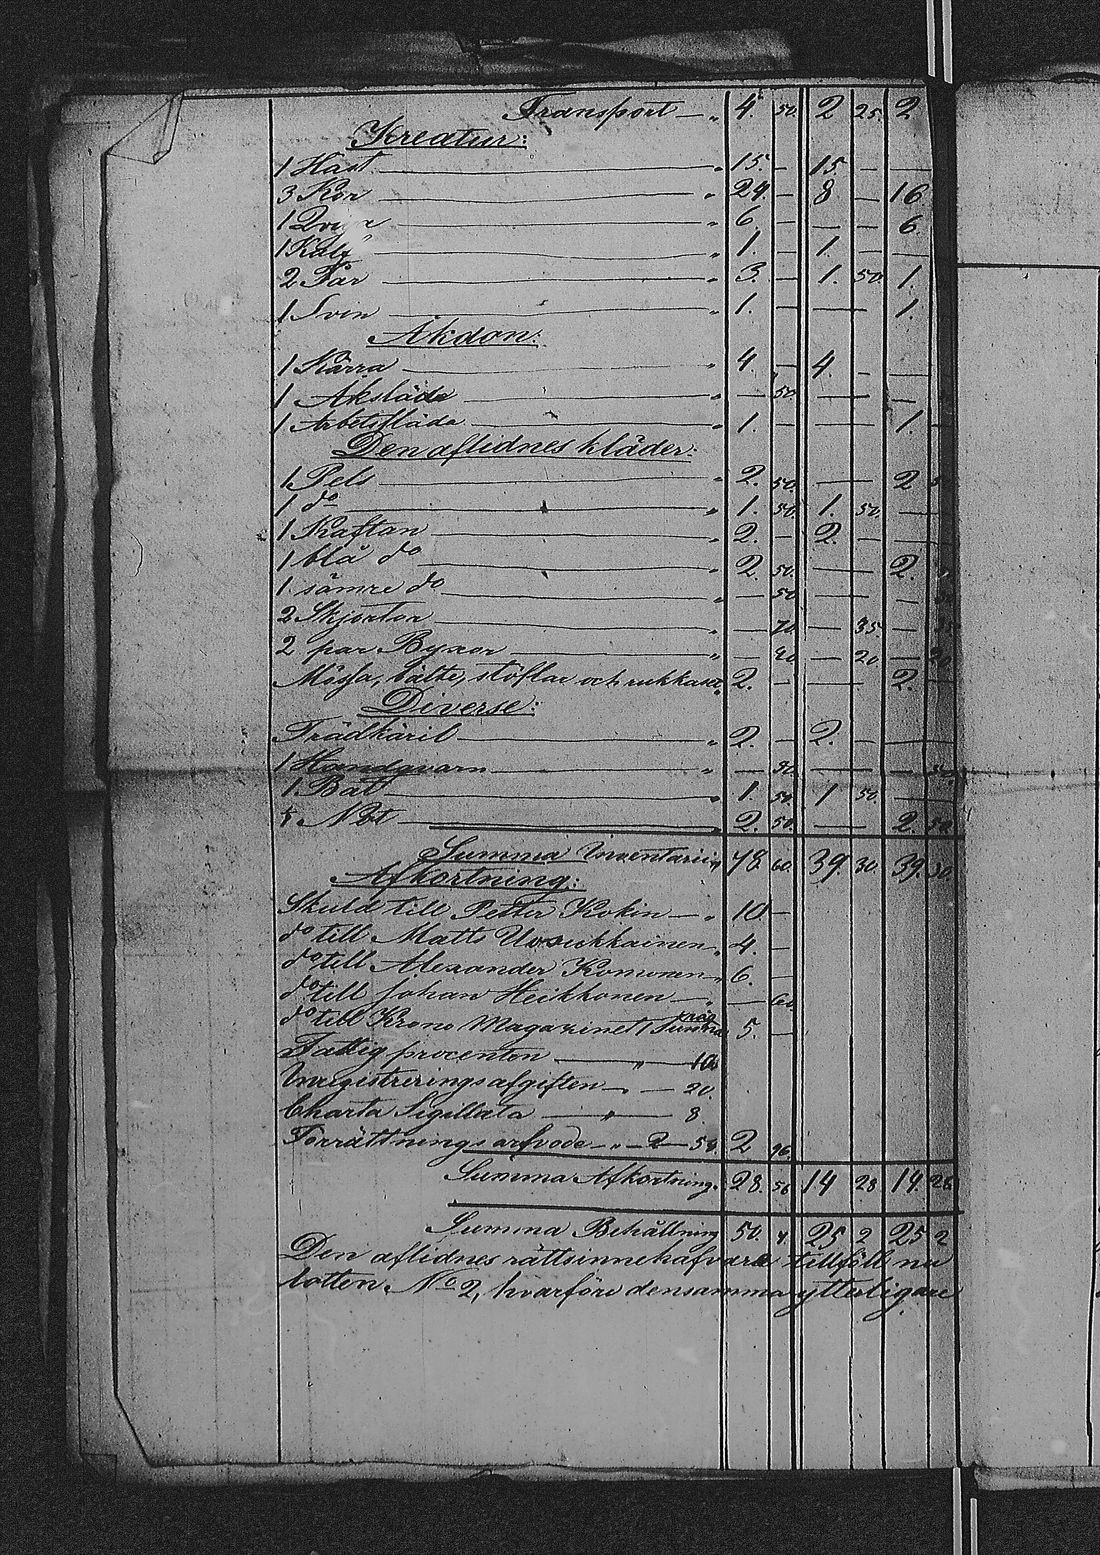 Transport — „ 4. 50. 2 25. 2
Kreatur:
1 Häst — „ 15. — 15. — — —
3 Kor — „ 24. — 8 — 16.
1 Qviga — „ 6. — — — 6.
1 Kalf — „ 1. — 1. — —
2 Får — „ 3. — 1. 50. 1.
1 Svin — „ 1. — — — 1.
Åkdon:
1 Kärra — „ 4 — 4 — —
1 Åksläde — „ — 50. — — —
1 Arbetsläde — „ 1. — — — 1.
Den aflidnes kläder:
1 Pels — „ 2. 50. — — 2
1 do — „ 1. 50. 1. 50. —
1 Kaftan — „ 2. — 2. — —
1 blå do — „ 2. 50. — — 2.
1 sämre do — „ — 50. — — —
2 Skjortor — „ — 70. — 35. — 35
2 par Byxor — „ — 40. — 20. — 20.
Mössa, bälte, stöflar och rukkaset „ 2. — — — 2. —
Diverse:
Trädkäril — „ 2. — 2. — —
1 Handqvarn — „ — 50. — — —
1 Båt — „ 1. 50. 1 50. —
1 Not — „ 2. 50. — — 2. 50.
Summa Inventarium 78. 60. 39. 30. 39. 30.
Afkortning:
Skuld till Petter Kokin — „ 10 —
do till Matts Uosukkainen „ 4. —
do till Alexander Komonen „ 6. —
do till Johan Heikkonen — „ — 60.
do till Krono Magazinet 5. —
Fattig procenten — „ — 18
Inregistreringsafgiften — „ — 20.
Charta Sigillata — „ — 8
Förrättnings arfvode — „ — 2 — 50. 2 96.
Summa Afkortning. 28. 56 14 28 14. 28
Summa Behållning 50. 4. 25 2 25 2
Den aflidnes rättsinnehafvare tillföll nu
lotten No 2, hvarföre densamma ytterligare